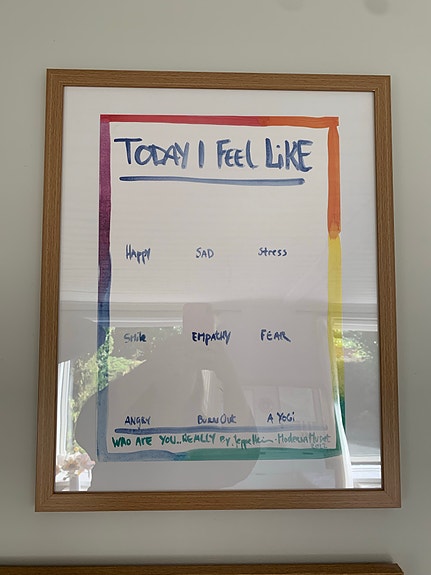 TODAY I FEEL LIKE
Happy SAD Stress
Smile EMPATHY FEAR
ANGRY BURN OUT A YOGi
WHO ARE YOU..REALLY By Jeppe Hein - Moderna Museet